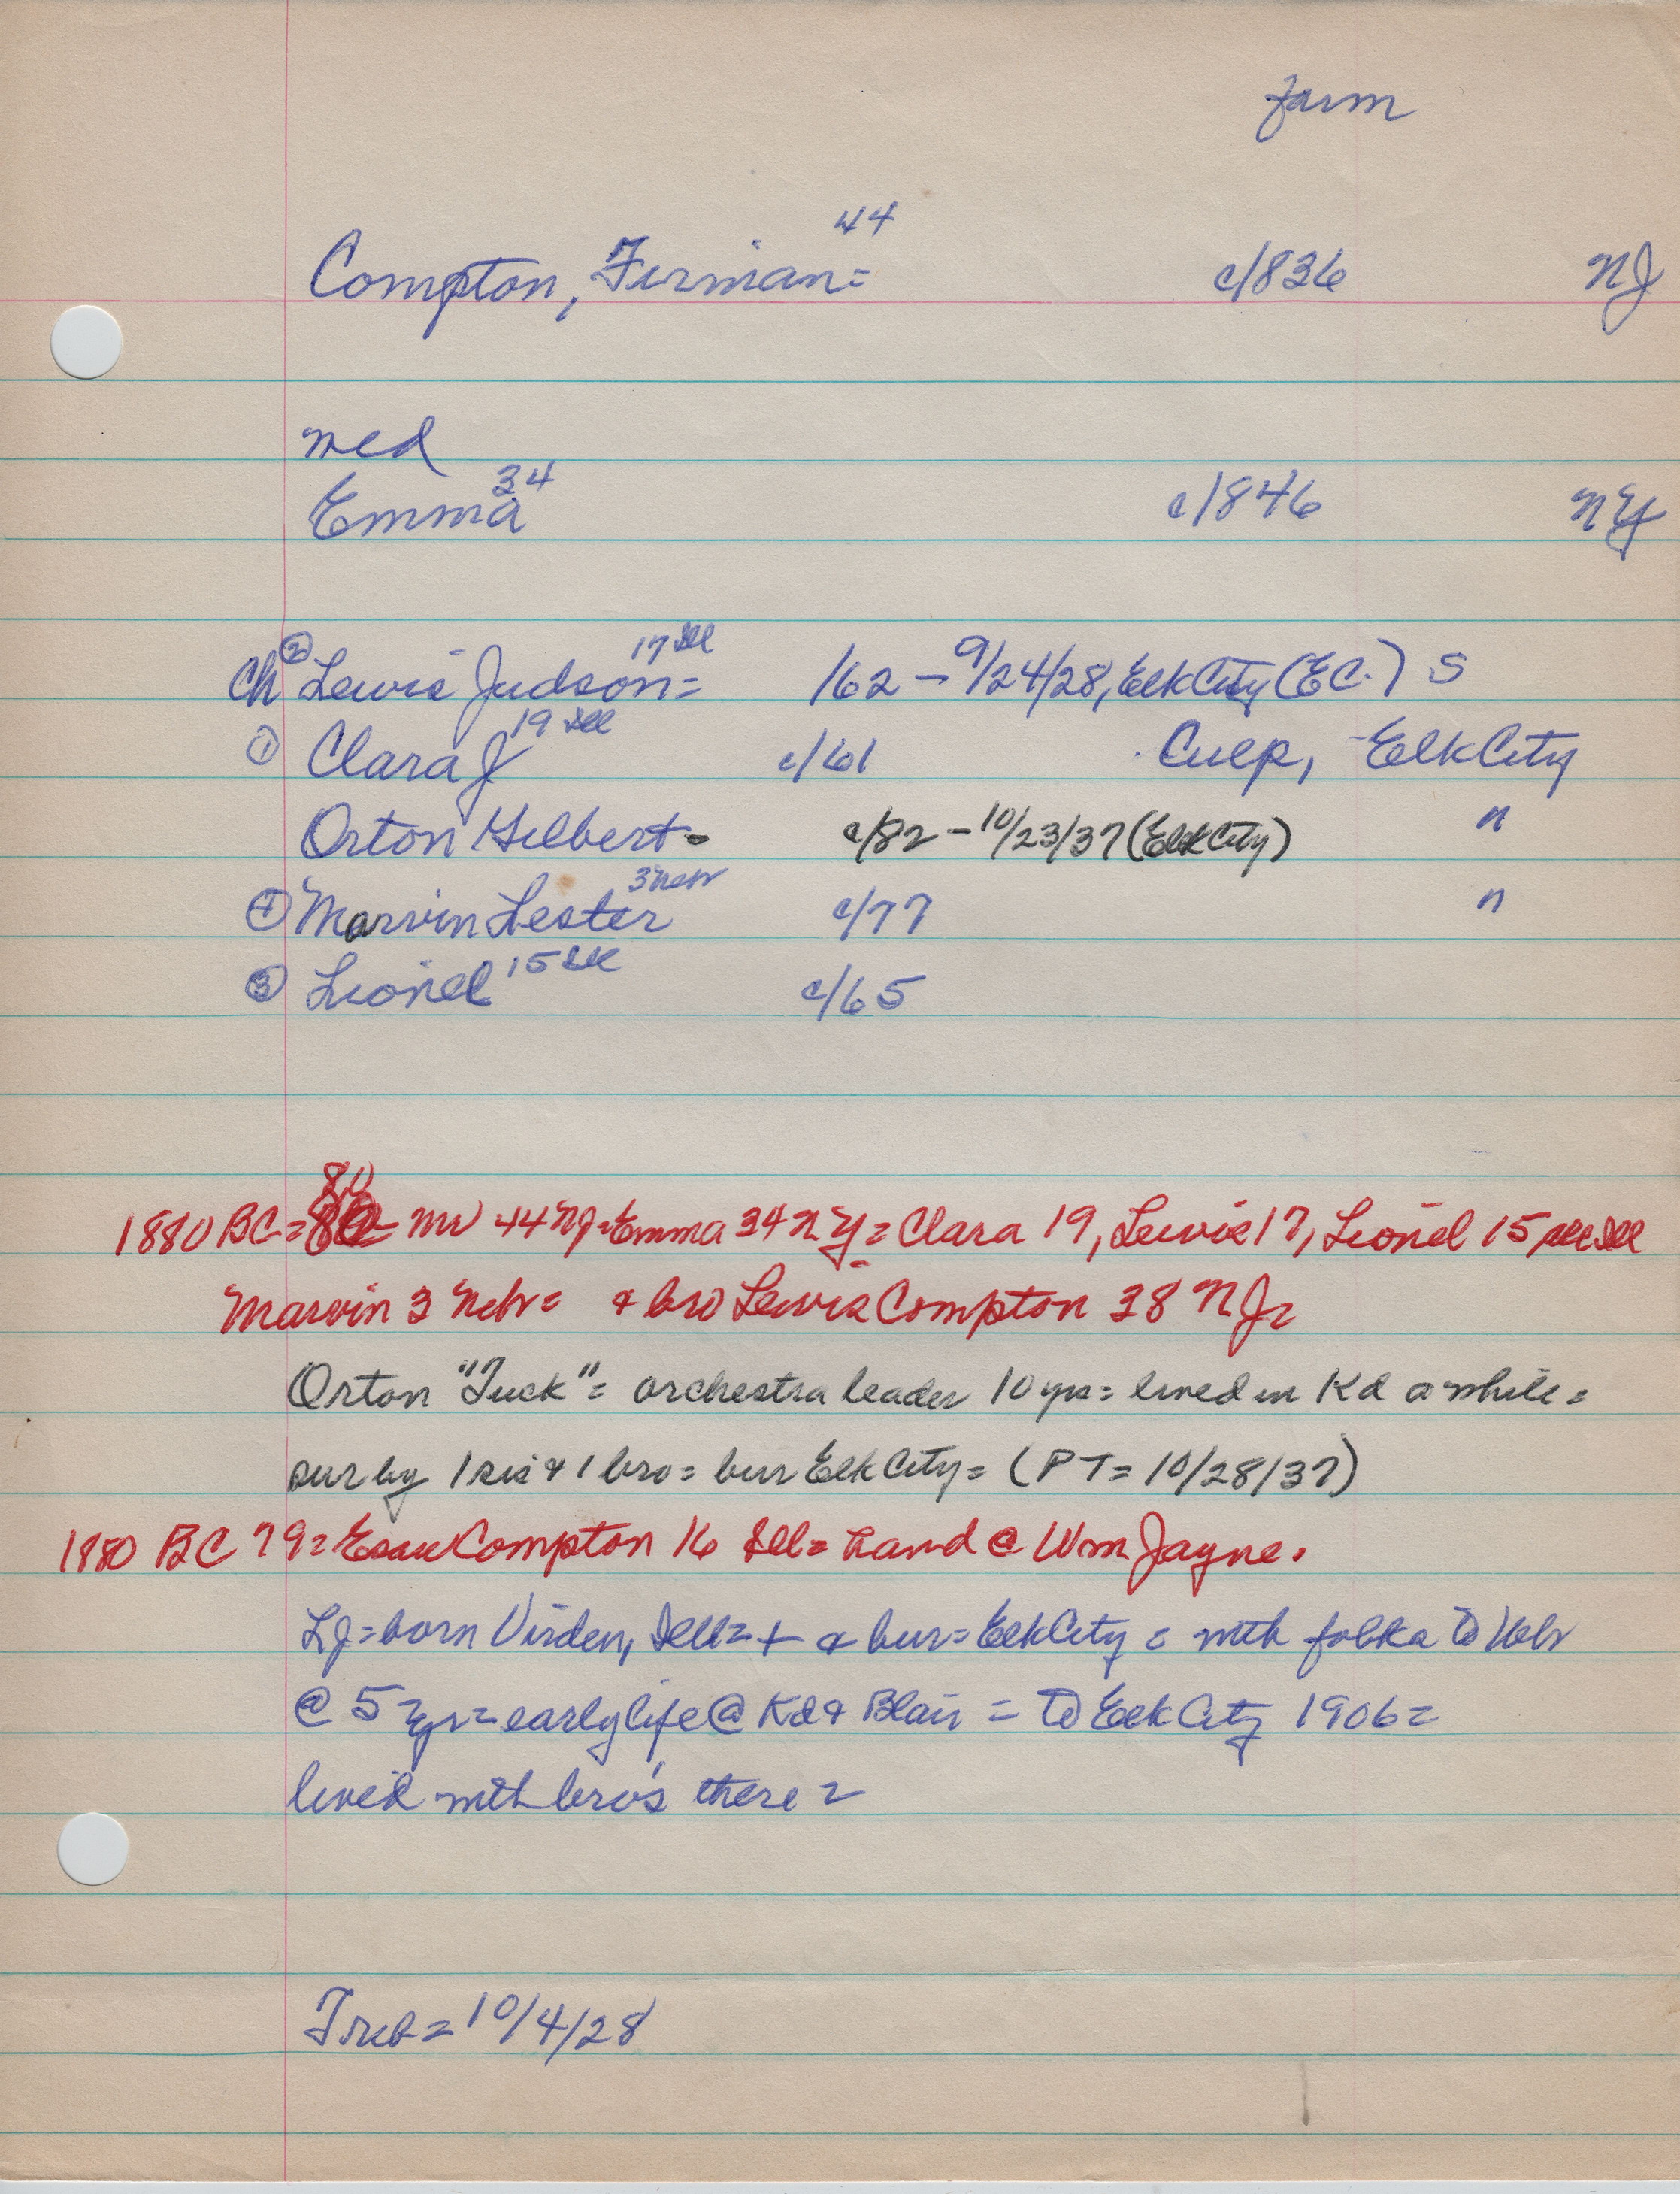 farm
44
Compton, Firman = c/836 NJ
med
34
Emma c/846 NY
17 Ill
Ch ② Lewis Judson = /62 – 9/24/28, Elk City (EC.) S
19 Ill
① Clara J c/61 Culp, Elk City
Orton Gilbert - c/82 – 10/23/37 (Elk City) "
3 Neb
④ Marvin Lester c/77 "
15 Ill
③ Lionel c/65
80
1880 BC = mv 44 NJ = Emma 34 NY = Clara 19, Lewis 17, Lionel 15, all Ill
Marvin 3 Neb = & bro Lewis Compton 38 NJ =
Orton "Tuck" = orchestra leader 10 yrs = lived in Kd awhile =
sur by 1 sis & 1 bro = bur Elk City = (PT = 10/28/37)
1880 BC 79 = Esau Compton 16 Ill = hand @ Wm Jayne.
LJ = born Virden, Ill = + & bur = Elk City = with folks to Neb
@ 5 yrs = early life @ Kd & Blair = to Elk City 1906 =
lived with bro's there =
Trib = 10/4/28